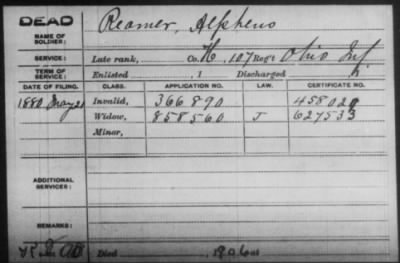 DEAD
NAME OF SOLDIER: Reamer, Alpheus
SERVICE: Late rank, Co. H, 107 Reg't Ohio Inf
TERM OF SERVICE: Enlisted , 1 Discharged
DATE OF FILING. CLASS. APPLICATION NO. LAW. CERTIFICATE NO.
1880 May 21 Invalid, 366890
Widow, 858560 J 627533
Minor,
ADDITIONAL SERVICES:
REMARKS:
Died